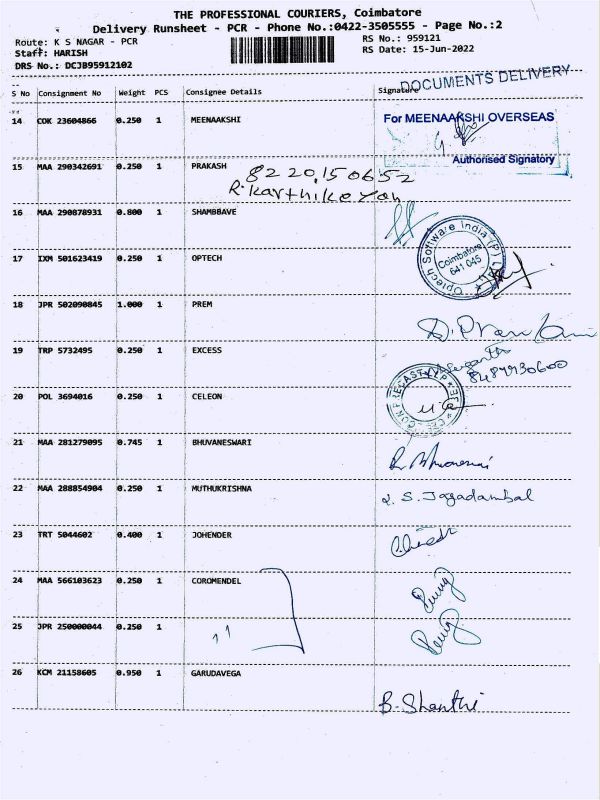 THE PROFESSIONAL COURIERS, Coimbatore
Delivery Runsheet - PCR - Phone No.:0422-3505555 - Page No.:2
Route: K S NAGAR - PCR
RS No.: 959121
Staff: HARISH
RS Date: 15-Jun-2022
DRS No.: DCJB95912102
S No Consignment No Weight PCS Consignee Details Signature
DOCUMENTS DELIVERY
14 COK 23604866 0.250 1 MEENAAKSHI
For MEENAAKSHI OVERSEAS
Authorised Signatory
15 MAA 290342691 0.250 1 PRAKASH
8220150652
R.Karthikeyan
16 MAA 290878931 0.800 1 SHAMBBAVE
17 IXM 501623419 0.250 1 OPTECH
Optech Software India (P) L
Coimbatore
641 045
18 JPR 502090845 1.000 1 PREM
19 TRP 5732495 0.250 1 EXCESS
20 POL 3694016 0.250 1 CELEON
21 MAA 281279095 0.745 1 BHUVANESWARI
22 MAA 288854904 0.250 1 MUTHUKRISHNA
S. Jagadambal
23 TRT 5044602 0.400 1 JOHENDER
24 MAA 566103623 0.250 1 COROMENDEL
25 JPR 250000044 0.250 1
26 KCM 21158605 0.950 1 GARUDAVEGA
B. Shanthi